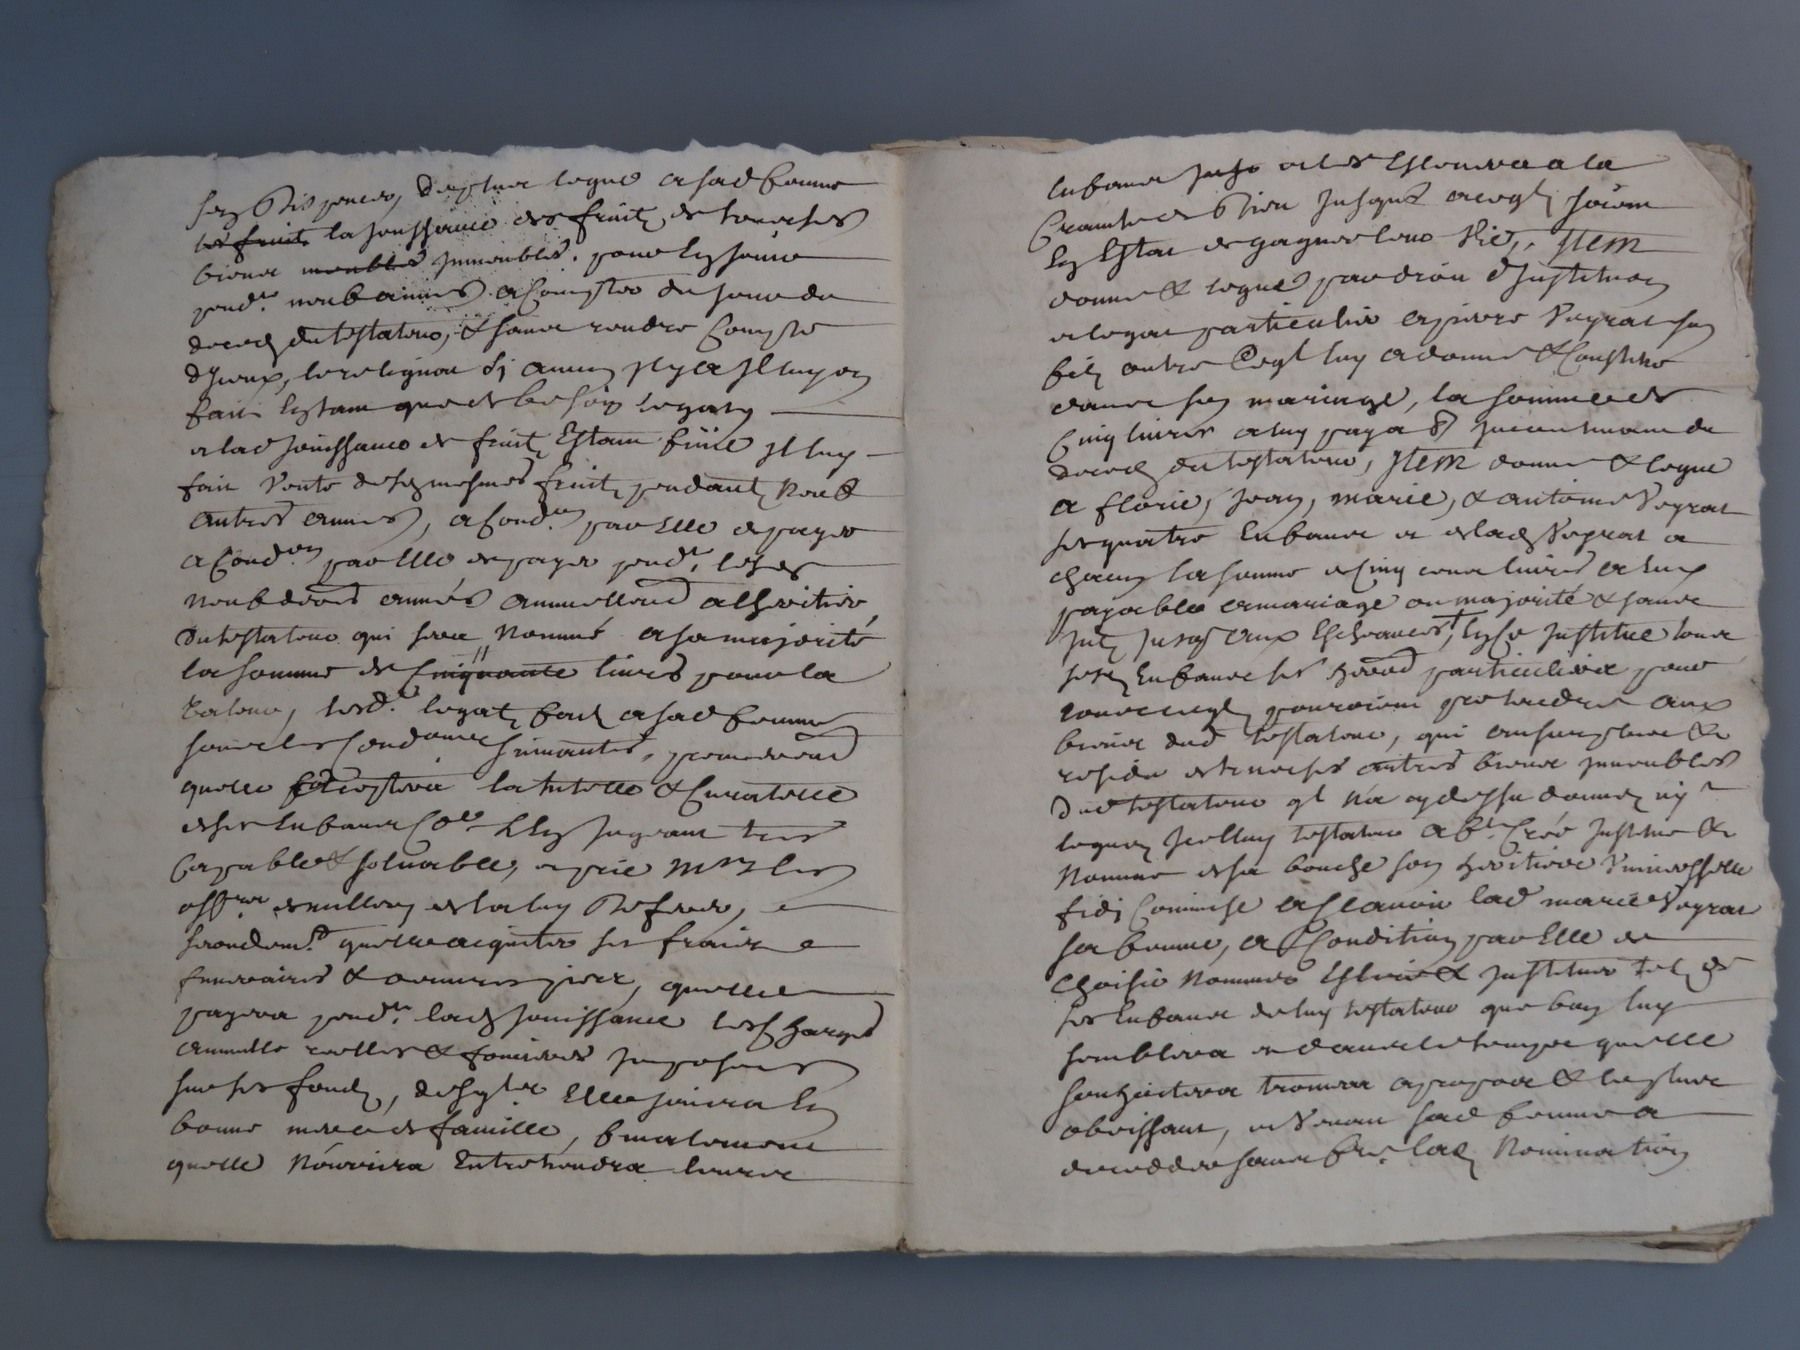 pences, de plus legue a sad femme
les fruits la jouissance des fruits de tous ses
biens meubles immeubles, pour en jouir
pend.t neuf années a compter du jour du
deces du testateur, & sans rendre compte
d'iceux, le reliquat si aucun il y a il luy en
fait en tant que de besoin legat
et lad jouissance de fruits estant finie il luy
fait vente de ses mesmes fruits pendant neuf
autres années, a cond.on par elle de payer
a cond.on par elle de payer pend.t lesd
neuf dern.es années annuellem.t a l'heritier
du testateur qui sera nommé a sa majorité
la somme de cinquante livres pour la
valeur, lesd.t legats faits a sad femme
sous les conditions suivantes, premierem.t
quelle acceptera la tutelle & curatelle
de ses enfans l'en jugeant tres
capable & solvable, et prie Mrs les
off.ers de la luy deferer,
secondem.t quelle acquittera ses fraix
funeraires & oeuvres pies, quelle
payera pend.t lad jouissance les charges
annuelles reelles & foncieres imposées
sur ses fonds, desquels elle jouira en
bonne mere de famille, finalement
quelle nourrira entretiendra leurs
enfans et les eslevera a la
crainte de Dieu jusques a ce qils soient
en estat de gagner leur vie, Item
donne & legue par droit d'institution
et legat particulier a pierre Veyrat son
fils outre ce qil luy a donné & constitué
dans son mariage, la somme de
cinq livres a luy payable incontinant du
deces du testateur, Item donne & legue
a florie, jean, marie, & antoine Veyrat
ses quatre enfans et de lad Veyrat a
chacun la somme de cinq cens livres a eux
payable a mariage ou majorité & sans
int.t jusqu aux escheances, en ce institue tous
sesd enfans ses herit.rs particuliers pour
que ils pourroient pretendre aux
biens dud testateur, qui au surplus & 
residu de tous ses autres biens immeubles
dud testateur ql n'a cy dessus donnez ny
leguez icelluy testateur a fait créé institue &
nommé de sa bouche son heritiere universselle
fidei commise a scavoir lad marie Veyrat
sa femme, a condition par elle de
choisir nommer eslire & instituer tel de
ses enfans de luy testateur que bon luy
semblera et dans le temps quelle
souhaitera trouver a propos & le plus
obeissant, et venant sad femme a
deceder sans fere lad nomination